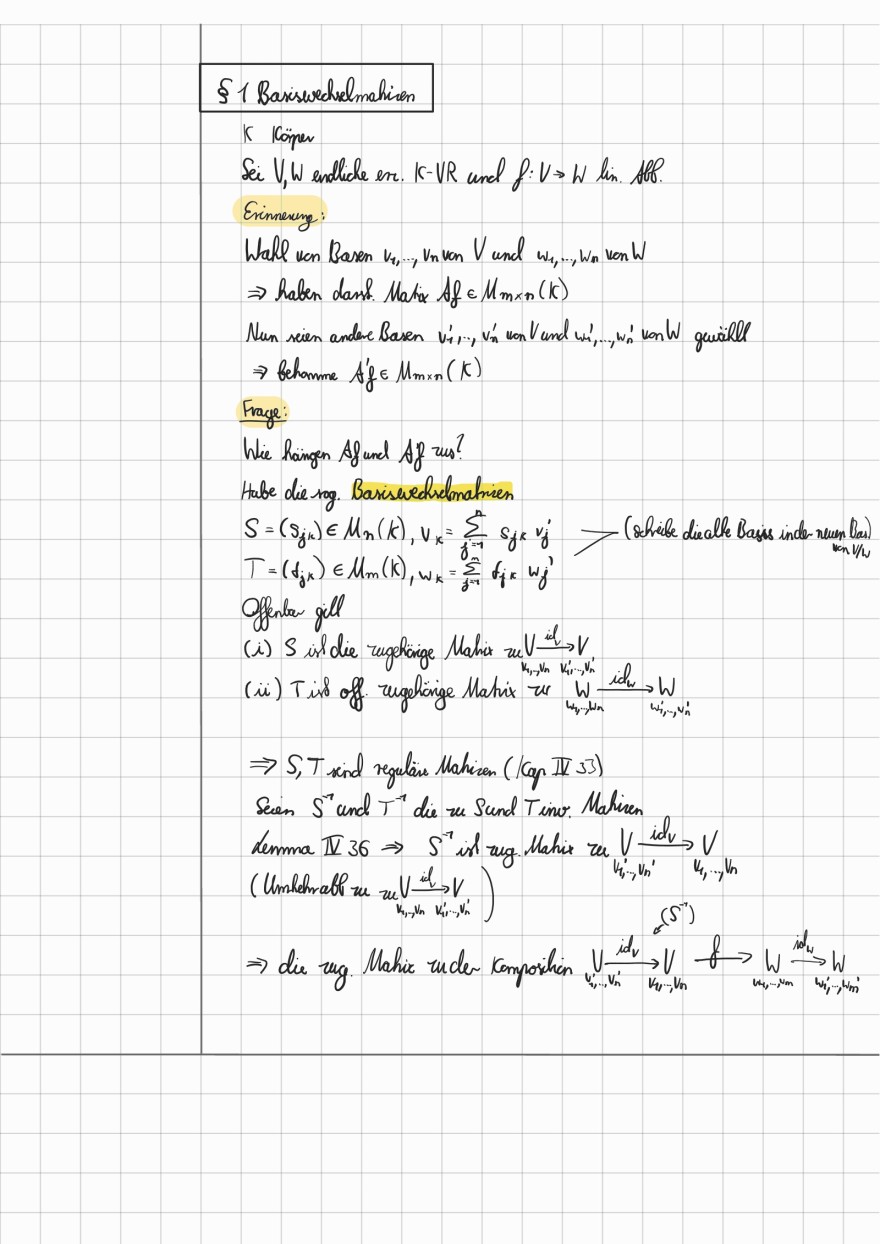 § 1 Basiswechselmatrizen
K Körper
Sei V, W endliche erz. K-VR und f: V → W lin. Abb.
Erinnerung:
Wahl von Basen v₁,..., vₙ von V und w₁,..., wₙ von W
⇒ haben darst. Matrix Af ∈ Mm×n(K)
Nun seien andere Basen v₁',.., vₙ' von V und w₁',..., wₙ' von W gewählt
⇒ bekomme A'f ∈ Mm×n(K)
Frage:
Wie hängen Af und A'f zus?
Habe die sog. Basiswechselmatrizen
S = (sⱼₖ) ∈ Mₙ(K), vₖ = ∑ⱼ₌₁ⁿ sⱼₖ vⱼ' (schreibe die alte Basis in der neuen Bas)
von V/W
T = (tⱼₖ) ∈ Mm(K), wₖ = ∑ⱼ₌₁ᵐ tⱼₖ wⱼ'
Offenbar gilt
(i) S ist die zugehörige Matrix zu V —id_v→ V
v₁,..,vₙ v₁',..,vₙ'
(ii) T ist off. zugehörige Matrix zu W —id_w→ W
w₁,..,wₙ w₁',..,wₙ'
⇒ S, T sind reguläre Matrizen (Kap IV 33)
Seien S⁻¹ und T⁻¹ die zu S und T inv. Matrizen
Lemma IV 36 ⇒ S⁻¹ ist zug. Matrix zu V —id_v→ V
v₁',..,vₙ' v₁,..,vₙ
(Umkehrabb zu zu V —id→ V)
v₁,..,vₙ v₁',..,vₙ'
(S⁻¹)
⇒ die zug. Matrix zu der Komposition V —id_v→ V —f→ W —id_w→ W
v₁',..,vₙ' v₁,..,vₙ w₁,..,wm w₁',..,wm'